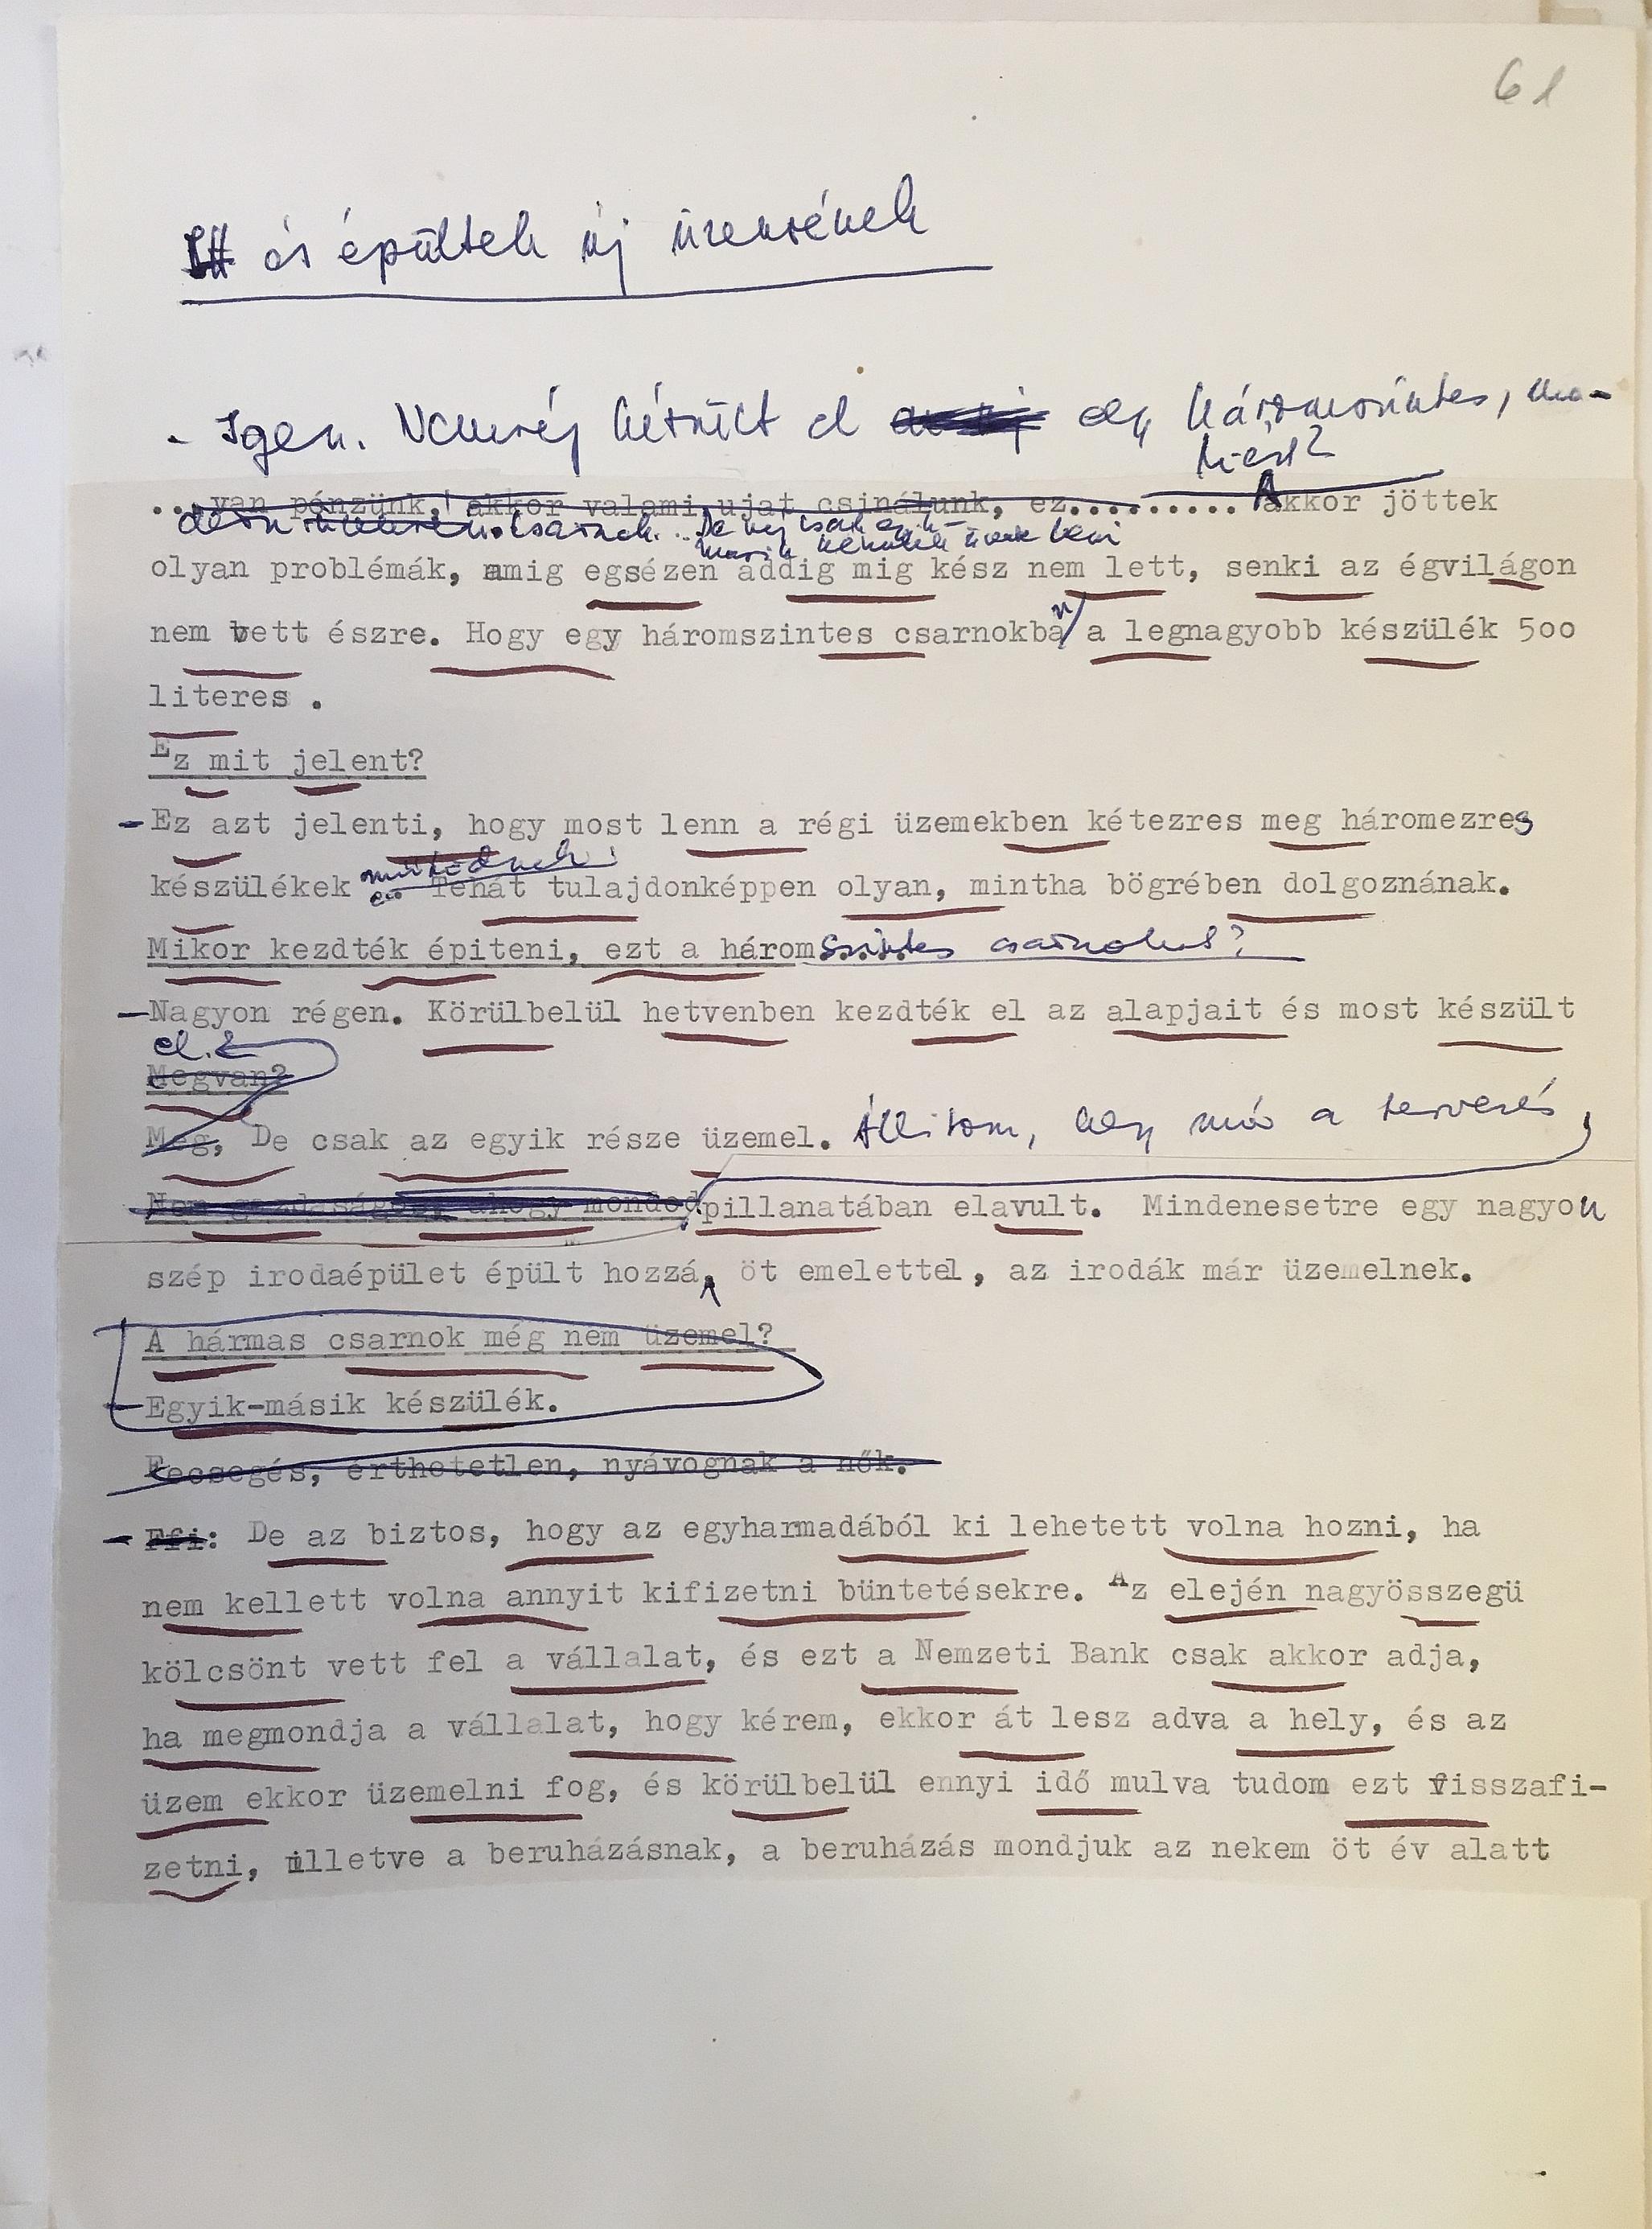 61
és épültek új üzemrének
- Igen. Nemrég készült el egy háromszintes, mo-
Miért?
...van pénzünk, akkor valami ujat csinálunk, ez.......... Akkor jöttek
dern csarnok. De még csak egyik-
másik készülék üzemel benn
olyan problémák, amig egsézen addig mig kész nem lett, senki az égvilágon
nem vett észre. Hogy egy háromszintes csarnokban a legnagyobb készülék 500
literes .
Ez mit jelent?
-Ez azt jelenti, hogy most lenn a régi üzemekben kétezres meg háromezres
működnek.
készülékek Tehát tulajdonképpen olyan, mintha bögrében dolgoznának.
Mikor kezdték épiteni, ezt a háromszintes csarnokot?
-Nagyon régen. Körülbelül hetvenben kezdték el az alapjait és most készült
el.
Megvan?
Meg, De csak az egyik része üzemel. Állitom, hogy már a tervezés
Nem gazdaságos, ahogy mondod pillanatában elavult. Mindenesetre egy nagyon
szép irodaépület épült hozzá, öt emelettel, az irodák már üzemelnek.
A hármas csarnok még nem üzemel?
-Egyik-másik készülék.
Fecsegés, érthetetlen, nyávognak a nők.
- Efi: De az biztos, hogy az egyharmadából ki lehetett volna hozni, ha
nem kellett volna annyit kifizetni büntetésekre. Az elején nagyösszegü
kölcsönt vett fel a vállalat, és ezt a Nemzeti Bank csak akkor adja,
ha megmondja a vállalat, hogy kérem, ekkor át lesz adva a hely, és az
üzem ekkor üzemelni fog, és körülbelül ennyi idő mulva tudom ezt visszafi-
zetni, illetve a beruházásnak, a beruházás mondjuk az nekem öt év alatt